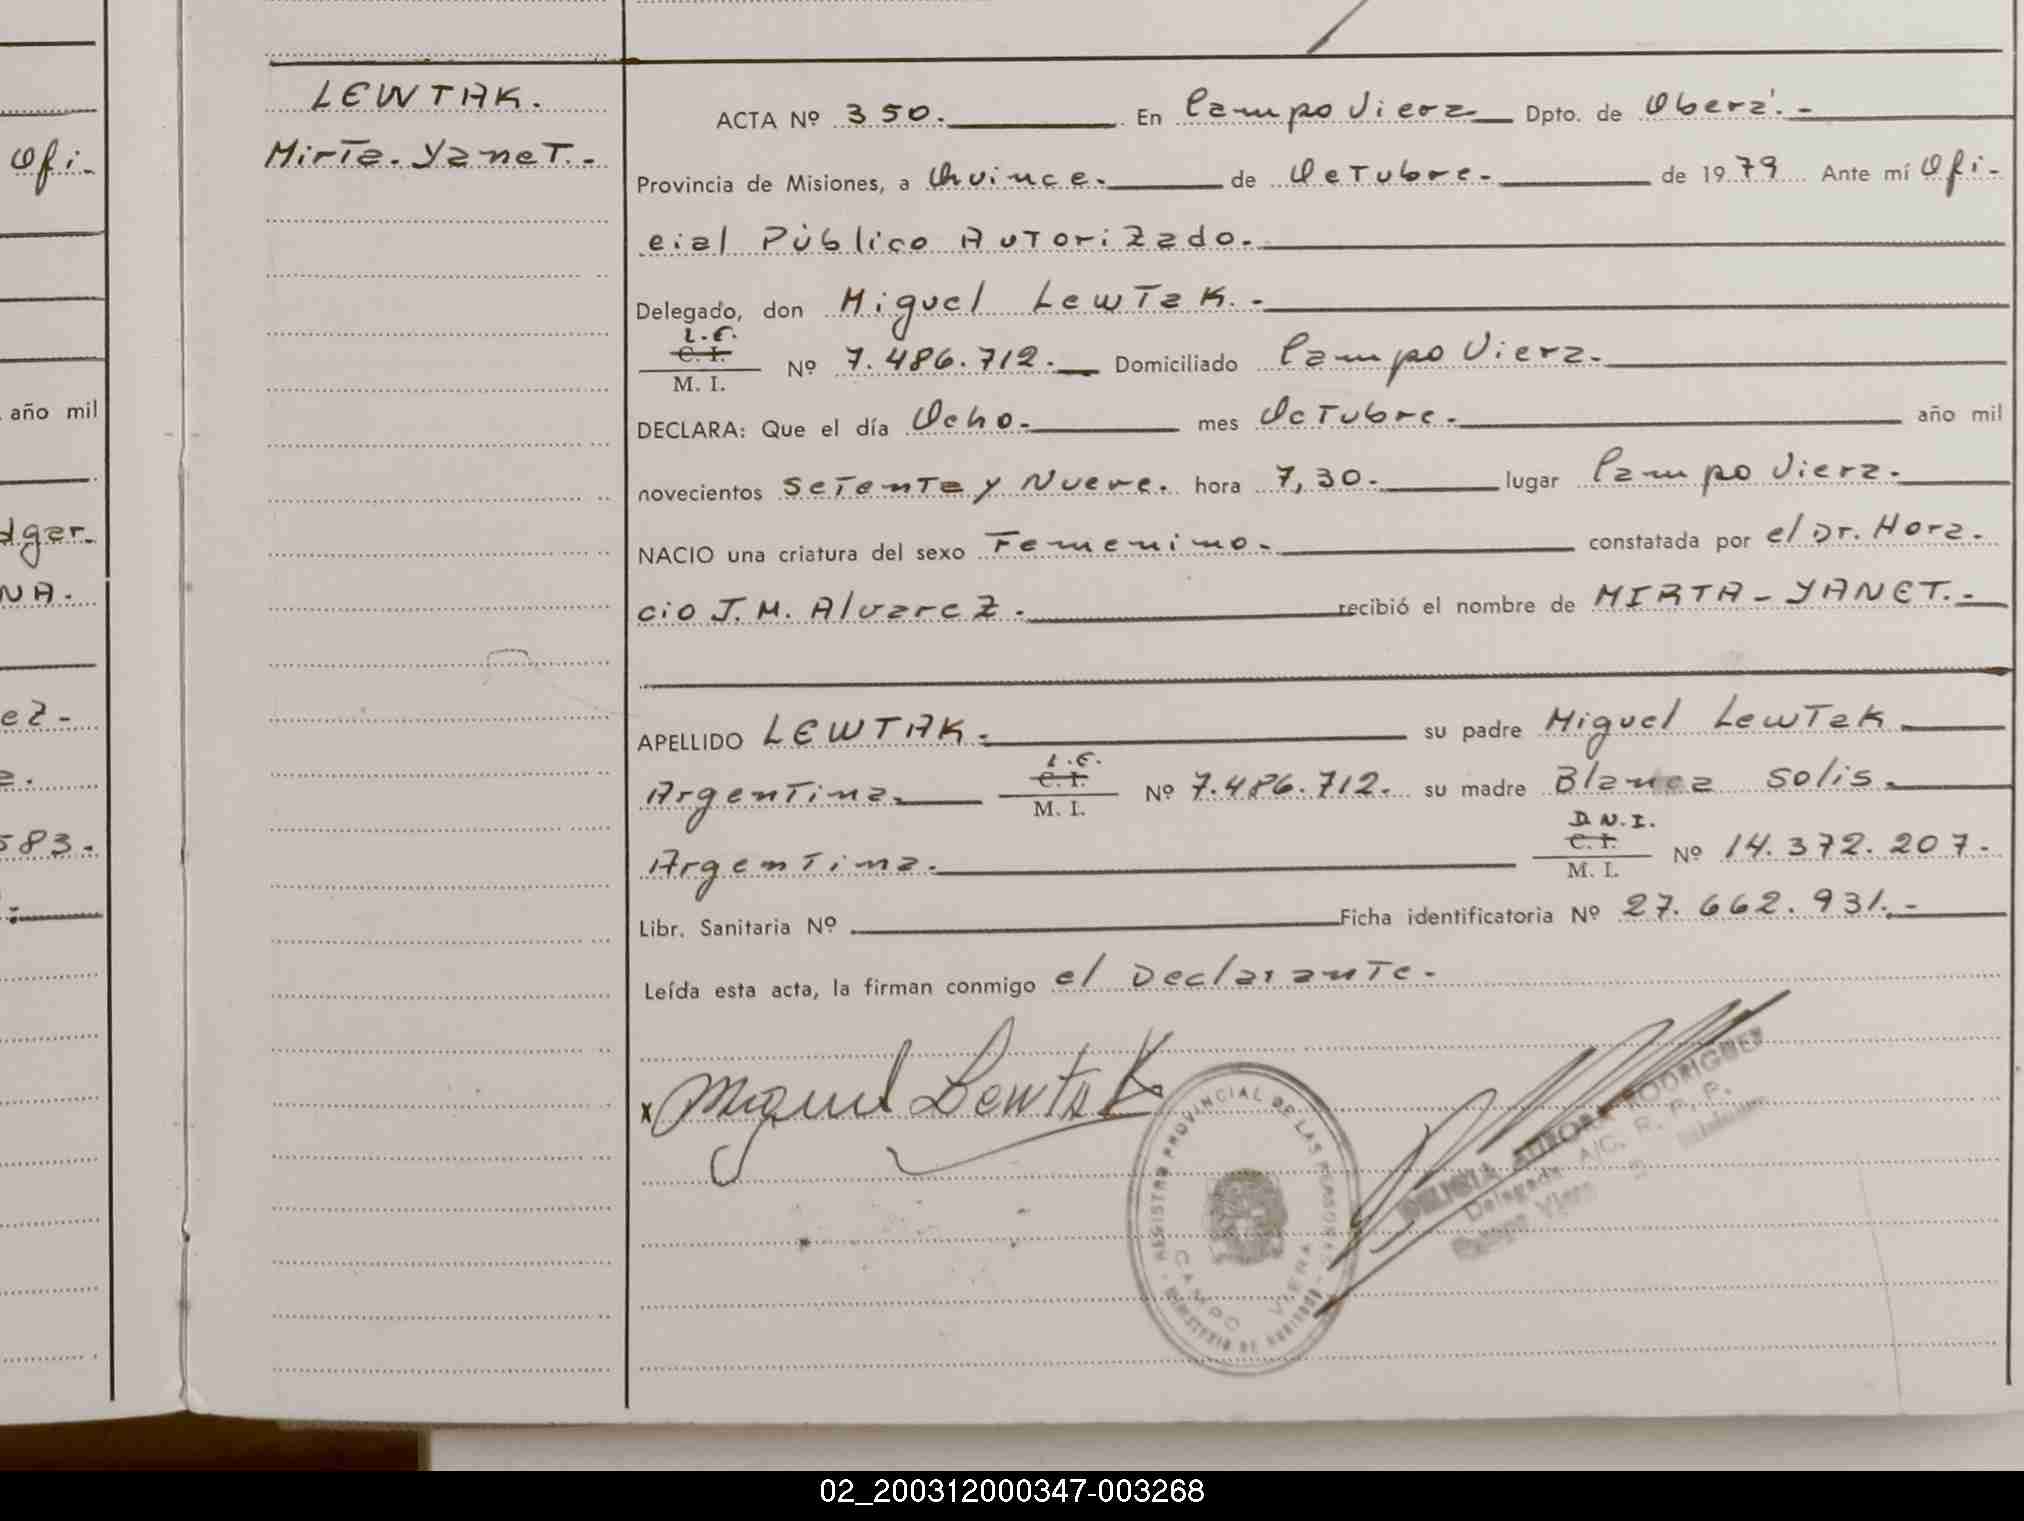 LEWTAK.
Mirta. Yanet.-
ACTA Nº 350. En Campo Viera Dpto. de Oberá.-
Provincia de Misiones, a Quince. de Octubre.- de 1979 Ante mí Ofi-
cial Público Autorizado.-
Delegado, don Miguel Lewtak.-
L.E.
C. I.
M. I.
Nº 7.486.712.- Domiciliado Campo Viera.
DECLARA: Que el día Ocho.- mes Octubre.- año mil
novecientos Setenta y Nueve. hora 7,30.- lugar Campo Viera.-
NACIO una criatura del sexo Femenino.- constatada por el Dr. Hora.
cio J. M. Alvarez. recibió el nombre de MIRTA-YANET.-
APELLIDO LEWTAK.- su padre Miguel Lewtak
Argentina.
L.E.
C. I.
M. I.
Nº 7.486.712. su madre Blanca Solis.
Argentina.
D.N.I.
C. I.
M. I.
Nº 14.372.207.-
Libr. Sanitaria Nº Ficha identificatoria Nº 27.662.931.-
Leída esta acta, la firman conmigo el Declarante.-
x Miguel Lewtak
REGISTRO PROVINCIAL DE LAS PERSONAS
CAMPO VIERA
MINISTERIO DE GOBIERNO
AURORA RODRIGUEZ
Delegada A/C. R. P. P.
Campo Viera
Ofi-
año mil
dgar-
NA.
ez-
a.
583.
02_200312000347-003268